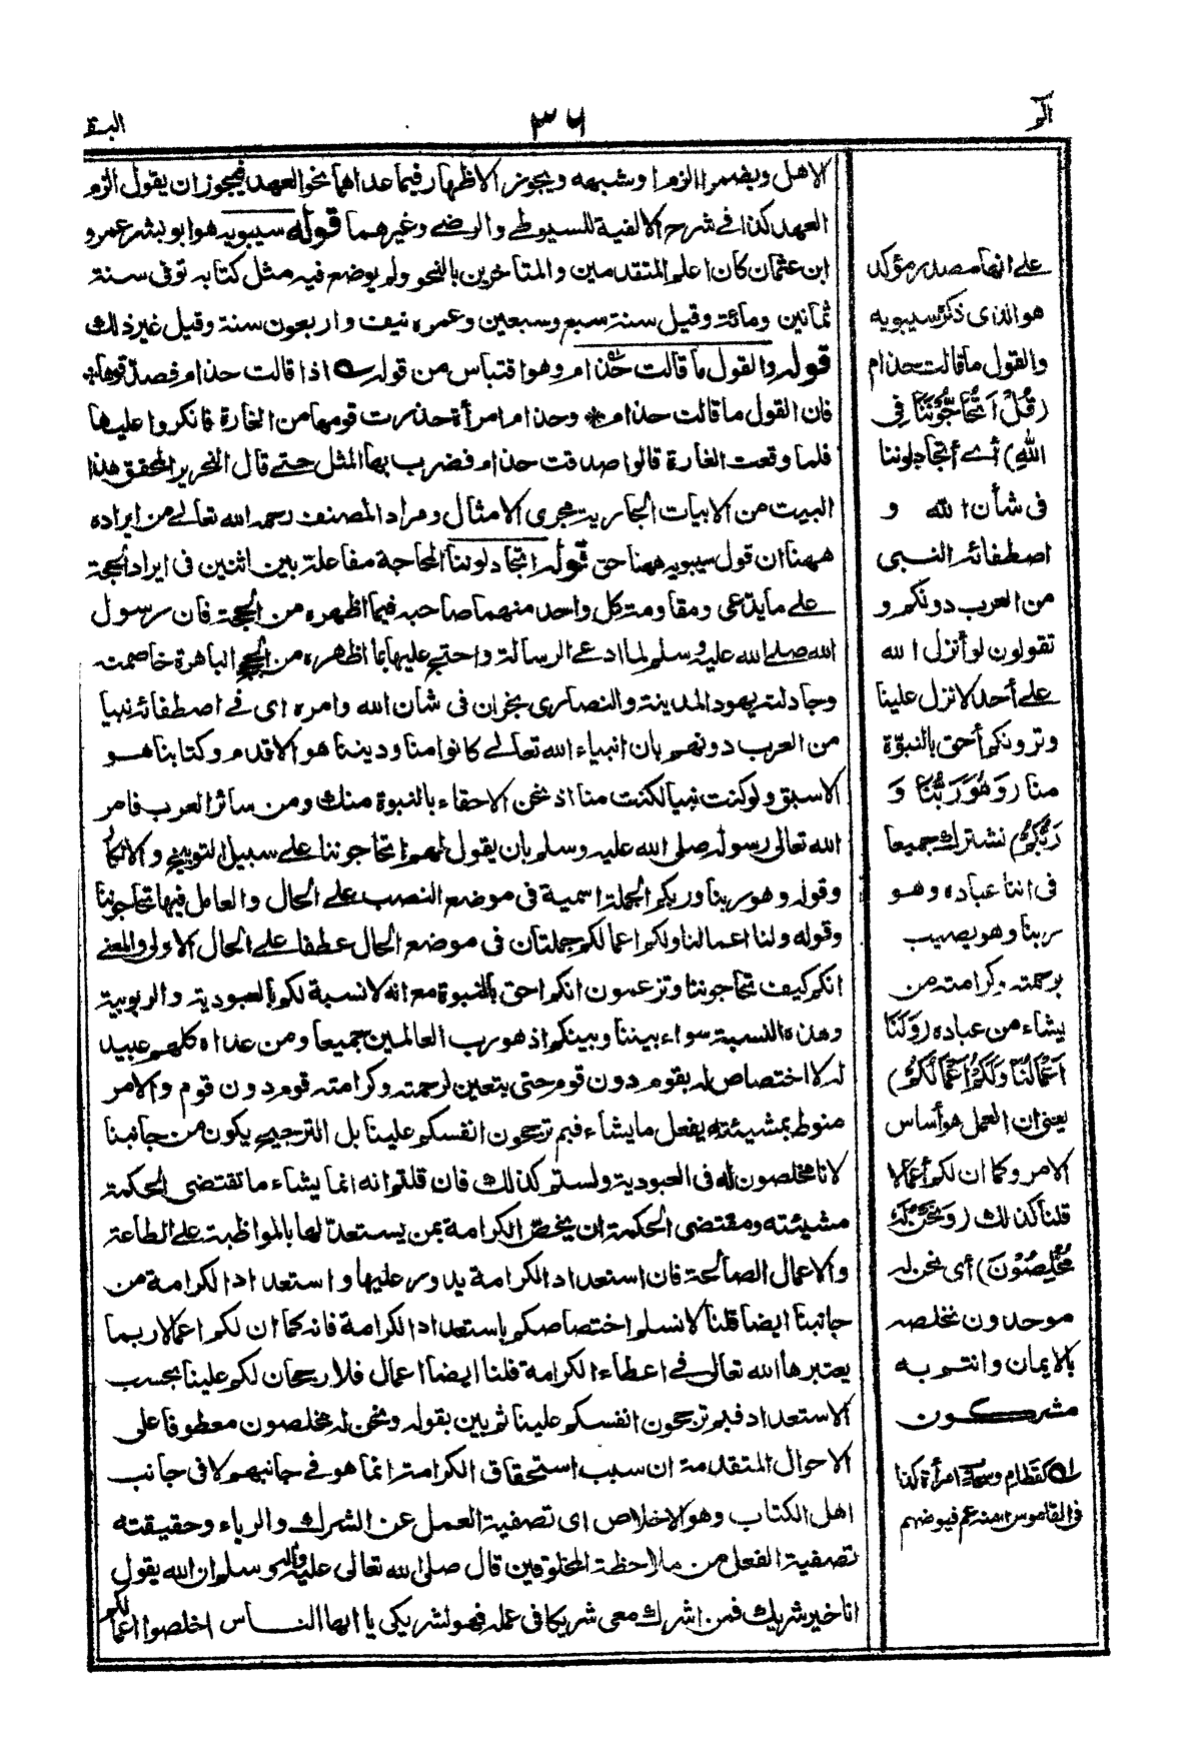 الم
٣٦
البقـ
الاهل ويضمر الزموا وشبهه ويجوز الاظهار فيما عداهما نحو العهد فيجوز ان يقول الزم
العهد كذا في شرح الالفية للسيوطي والرضي وغيرهما قوله سيبويه هو ابو بشر عمرو
ابن عثمان كان اعلم المتقدمين والمتاخرين بالنحو ولم يوضع فيه مثل كتابه توفى سنة
ثمانين ومائة وقيل سنة سبع وسبعين وعمره نيف واربعون سنة وقيل غير ذلك
قوله والقول ما قالت حذام وهو اقتباس من قوله اذا قالت حذام فصدقوها
فان القول ما قالت حذام * وحذام امرأة حذرت قومها من الغارة فانكروا عليها
فلما وقعت الغارة قالوا صدقت حذام فضرب بها المثل حتى قال النحرير المحقق هذا
البيت من الابيات الجارية مجرى الامثال ومراد المصنف رحمه الله تعالى من ايراده
ههنا ان قول سيبويه ههنا حق قوله اتجادلوننا المحاجة مفاعلة بين اثنين فى ايراد الحجة
على ما يدعى ومقاومة كل واحد منهما صاحبه فيما اظهره من الحجة فان رسول
الله صلى الله عليه وسلم لما ادعى الرسالة واحتج عليها بما اظهره من الحجج الباهرة خاصمته
وجادلته يهود المدينة والنصارى بنجران فى شان الله وامره اى في اصطفائه نبيا
من العرب دونهم بان انبياء الله تعالى كانوا منا وديننا هو الاقدم وكتابنا هو
الاسبق ولو كنت نبيا لكنت منا اذ نحن الاحقاء بالنبوة منك ومن سائر العرب فامر
الله تعالى رسوله صلى الله عليه وسلم بان يقول لهم اتحاجوننا على سبيل التوبيخ والانكار
وقوله وهو ربنا وربكم الجملة اسمية فى موضع النصب على الحال والعامل فيها تحاجوننا
وقوله ولنا اعمالنا ولكم اعمالكم جملتان فى موضع الحال عطفا على الحال الاولى والمعنى
انكم كيف تحاجوننا وتزعمون انكم احق بالنبوة مع انه لا نسبة لكم بالعبودية والربوبية
وهذه النسبة سواء بيننا وبينكم اذ هو رب العالمين جميعا ومن عداه كلهم عبيد
له لا اختصاص له بقوم دون قوم حتى يتعين لرحمته وكرامته قوم دون قوم والامر
منوط بمشيئته يفعل ما يشاء فبم ترجحون انفسكم علينا بل الترجيح يكون من جانبنا
لانا مخلصون له فى العبودية ولستم كذلك فان قلتم انه انما يشاء ما تقتضى الحكمة
مشيئته ومقتضى الحكمة ان يخص الكرامة بمن يستعد لها بالمواظبة على الطاعة
والاعمال الصالحة فان استعداد الكرامة يدور عليها واستعداد الكرامة من
جانبنا ايضا قلنا لا نسلم اختصاصكم باستعداد الكرامة فانه كما ان لكم اعمالا ربما
يعتبرها الله تعالى في اعطاء الكرامة فلنا ايضا اعمال فلا رجحان لكم علينا بحسب
الاستعداد فبم ترجحون انفسكم علينا ثم بين بقوله ونحن له مخلصون معطوفا على
الاحوال المتقدمة ان سبب استحقاق الكرامة انما هو في جانبهم لا فى جانب
اهل الكتاب وهو الاخلاص اى تصفية العمل عن الشرك والرياء وحقيقته
تصفية الفعل من ملاحظة المخلوقين قال صلى الله تعالى عليه واله وسلم ان الله يقول
انا خير شريك فمن اشرك معى شريكا فى عمله فهو لشريكى يا ايها الناس اخلصوا اعمالكم
على انها مصدر مؤكد
هو الذى ذكره سيبويه
والقول ما قالت حذام
(قُلْ اَتُحَاجُّوْنَنَا فِى
اللهِ) أى أتجادلوننا
فى شأن الله و
اصطفائه النبى
من العرب دونكم و
تقولون لو أنزل الله
على أحد لانزل علينا
وترونكم أحق بالنبوّة
منا (وَهُوَ رَبُّنَا وَ
رَبُّكُمْ) نشترك جميعا
فى اننا عباده وهو
ربنا وهو يصيب
برحمته وكرامته من
يشاء من عباده (وَلَنَا
اَعْمَالُنَا وَلَكُمْ اَعْمَالُكُمْ)
يعنى ان العمل هو أساس
الامر وكما ان لكم أعمالا
قلنا كذلك (وَنَحْنُ لَهُ
مُخْلِصُوْنَ) أى نحن له
موحدون نخلصه
بالايمان وانتم به
مشركون
كقطام وسحاب امرأة كذا
فى القاموس